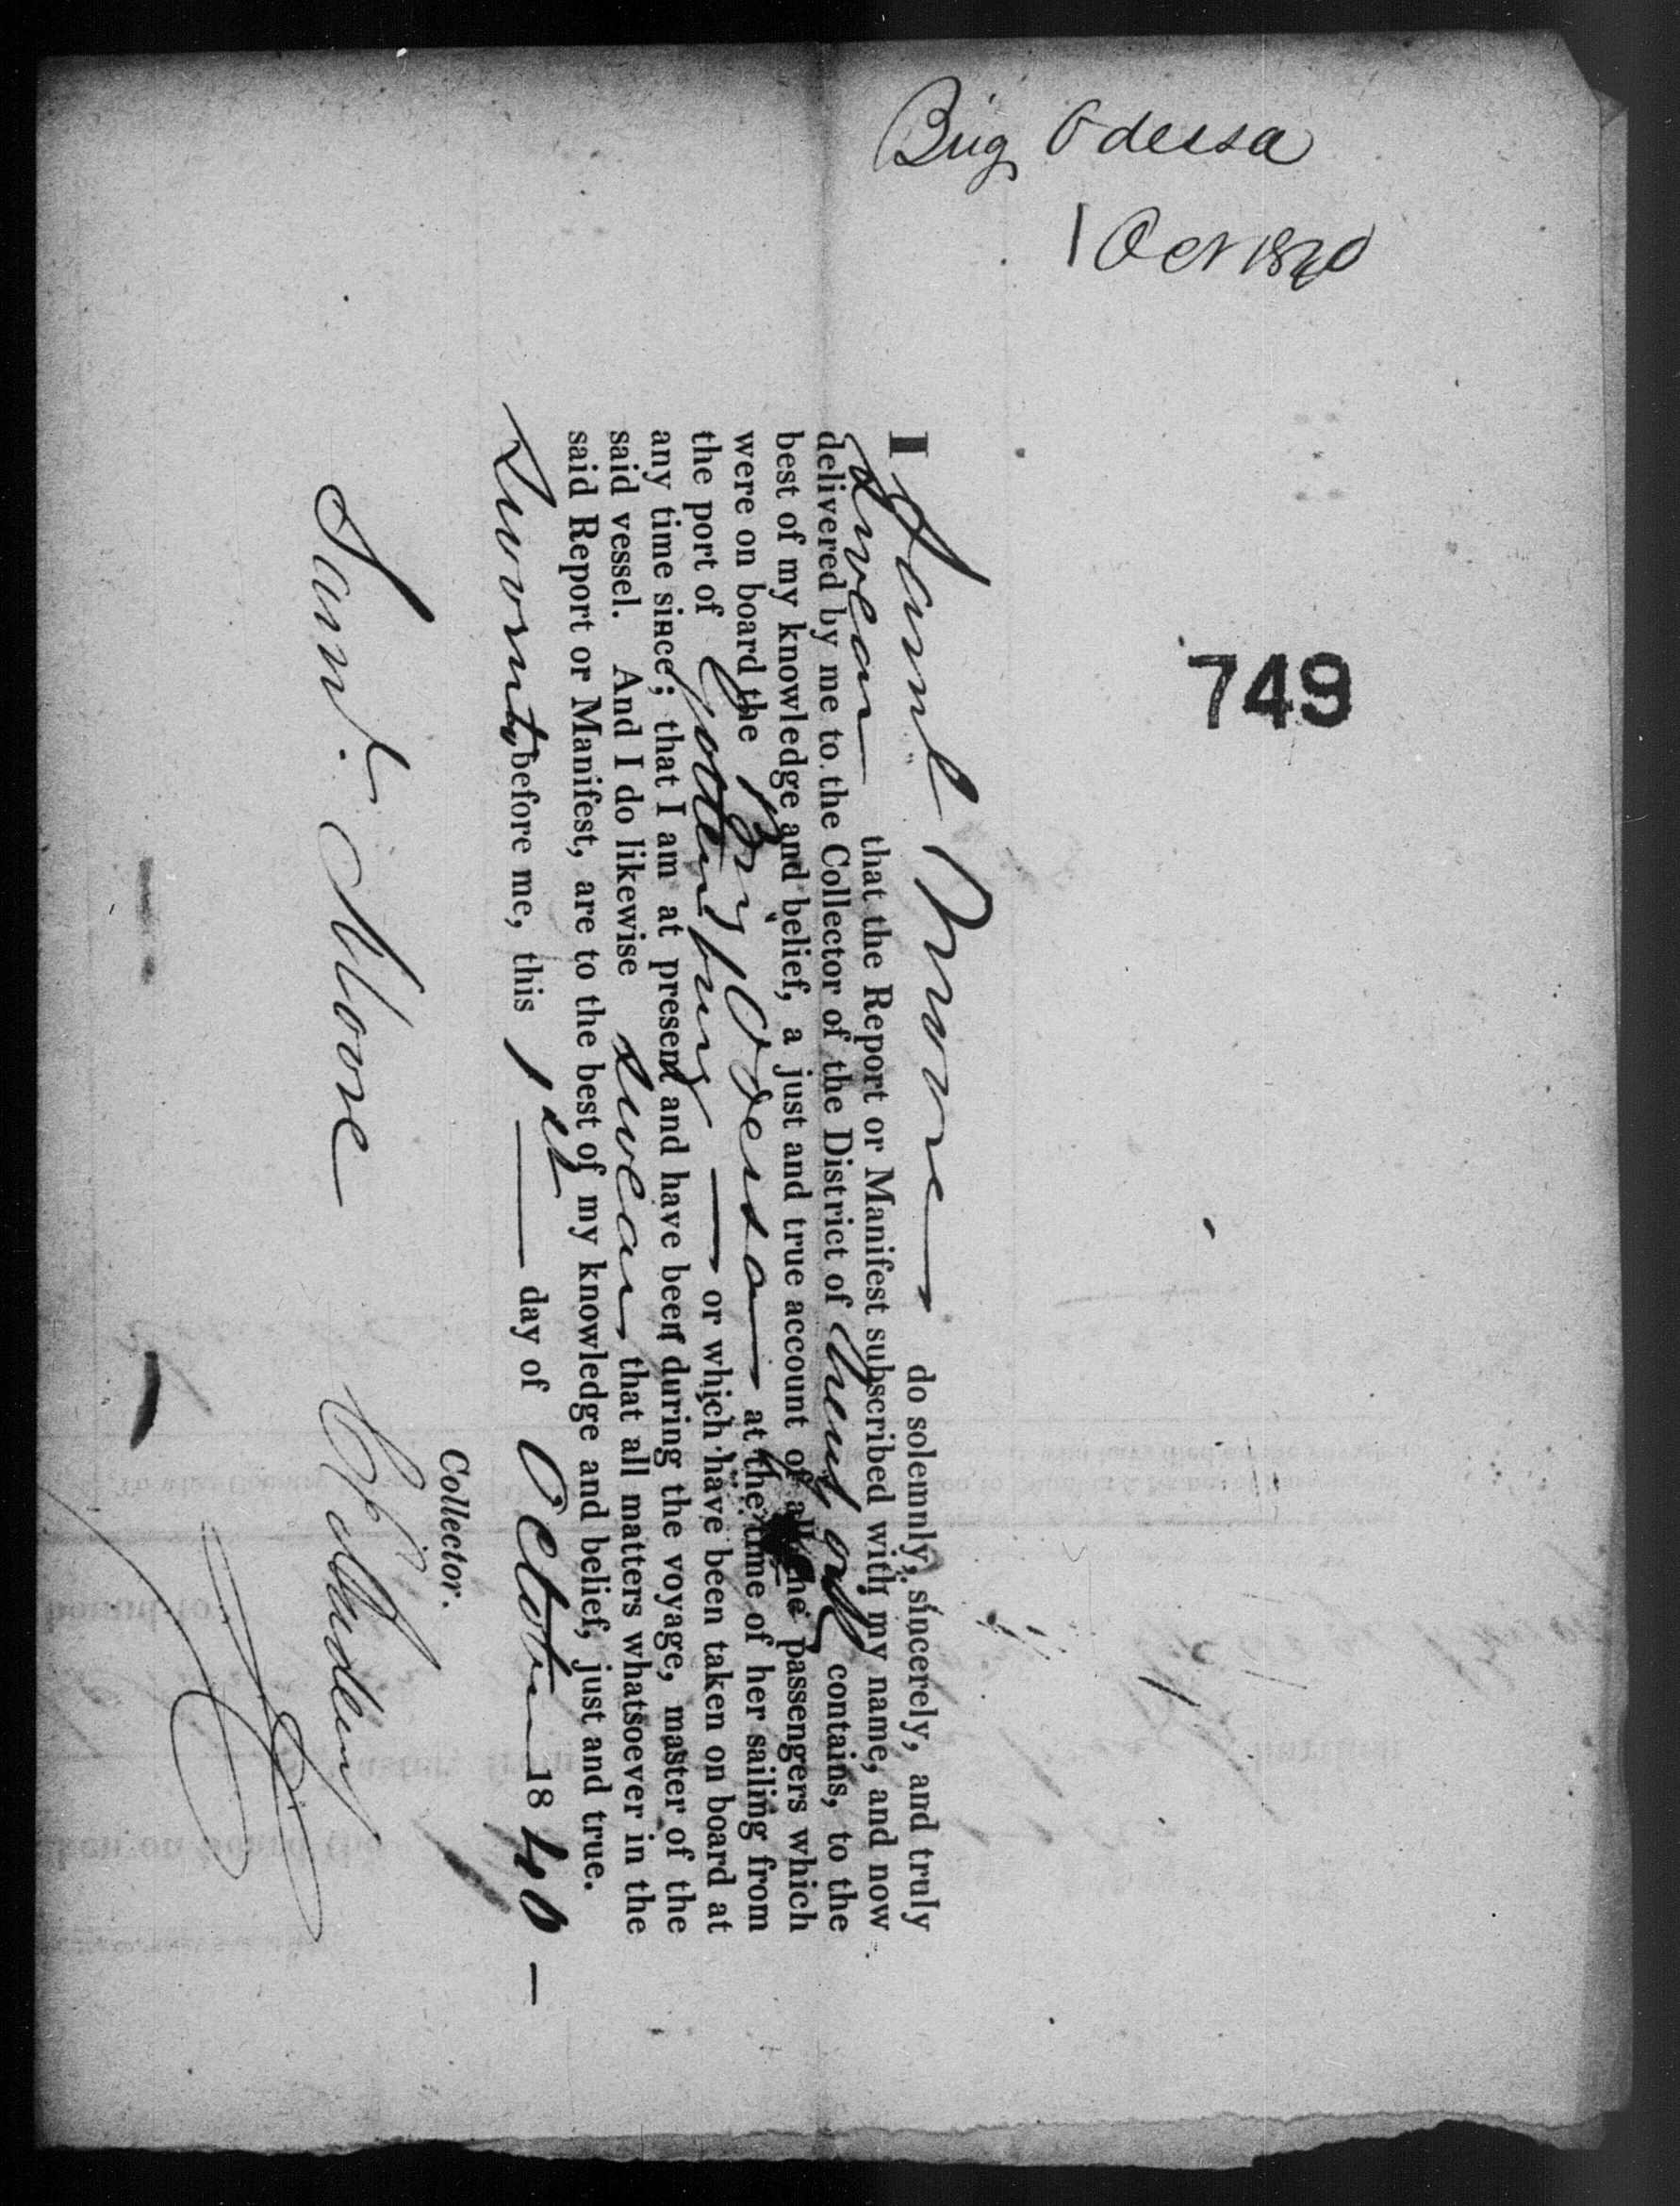 Brig Odessa
1 Oct 1840
749
I Saml Moore do solemnly, sincerely, and truly
swear that the Report or Manifest subscribed with my name, and now
delivered by me to the Collector of the District of New York contains, to the
best of my knowledge and belief, a just and true account of all the passengers which
were on board the Brig Odessa at the time of her sailing from
the port of Gottenburg or which have been taken on board at
any time since; that I am at present and have been during the voyage, master of the
said vessel. And I do likewise swear that all matters whatsoever in the
said Report or Manifest, are to the best of my knowledge and belief, just and true.
Sworn to before me, this 1st day of October 1840
Collector.
Saml. Moore